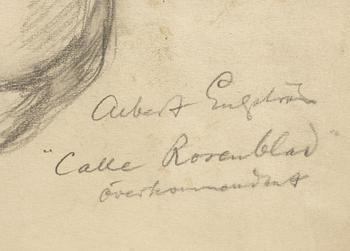 Albert Engström
"Calle Rosenblad"
överkommendant